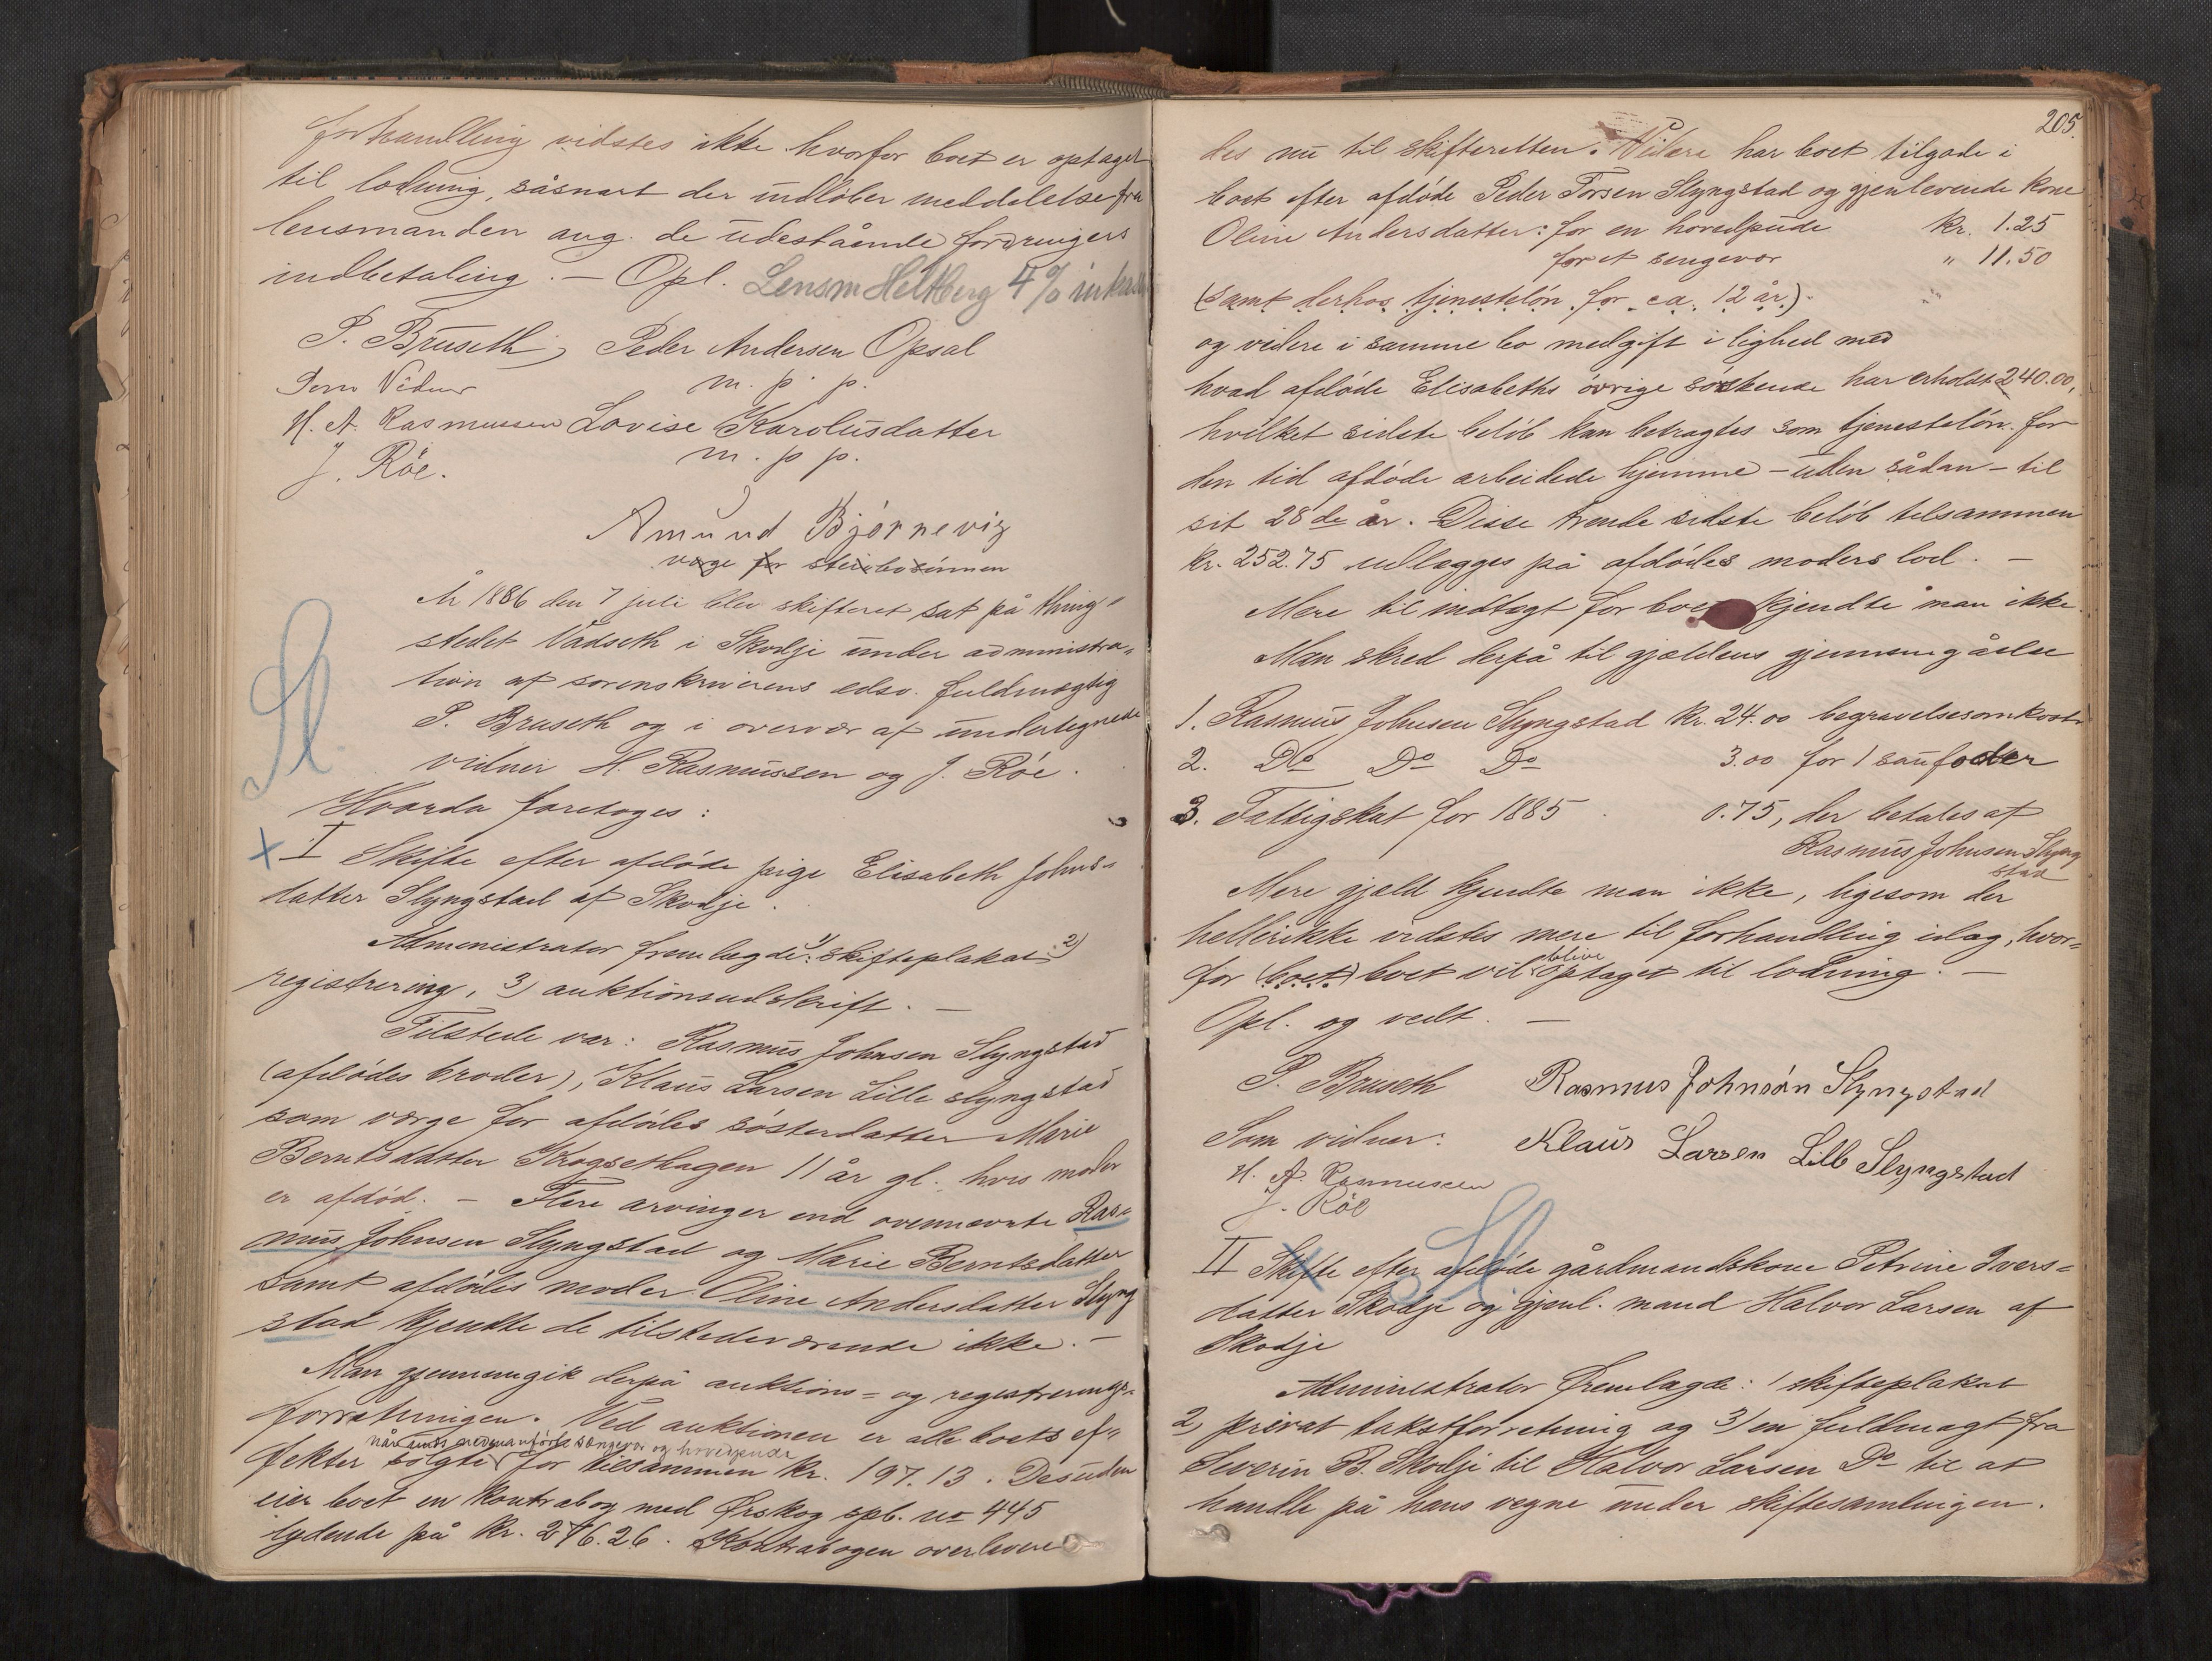 forhandling vidstes ikke hvorfor boet er optaget
til lodning, såsnart der indløber meddelelse fra
lensmanden ang. de udestående fordringers
indbetaling. — Opl. Lensm Heltberg 4% inkasso
P. Bruseth, Peder Andersen Opsal
Som Vidner m. p. p.
H. A. Rasmussen Lovise Karolusdatter
J. Røe. m. p. p.
Amund Bjørnevig
værge for sterbosønnen
År 1886 den 7 juli blev skifteret sat på thing-
stedet Vådseth i Skodje under administra-
tion af sorenskriverens edsv. fuldmægtig
P. Bruseth og i overvær af undertegnede
vidner H. Rasmussen og J. Røe.
Hvorda foretoges:
I Skifte efter afdøde pige Elisabeth Johns-
datter Slyngstad af Skodje.
Administrator fremlagde: 1) skifteplakat 2)
registrering, 3) auktionsudskrift. —
Tilstede var: Rasmus Johnsen Slyngstad
(afdødes broder), Klaus Larsen Lille slyngstad
som værge for afdødes søsterdatter Marie
Berntsdatter Krogsethagen 11 år gl. hvis moder
er afdød. — Flere arvinger end ovennævnte Ras-
mus Johnsen Slyngstad og Marie Berntsdatter
samt afdødes moder Oline Andersdatter Slyng
stad kjendte de tilstedeværende ikke. —
Man gjennemgik derpå auktions- og registrerings-
forretningen. Ved auktionen er alle boets ef-
når undt. nedenanførte sængevær og hovedpude
fekter solgte for tilsammen kr. 197.13. Desuden
eier boet en kontrabog med Ørskog spb. no 445
lydende på kr. 276.26. Kontrabogen overlevere
205.
des nu til skifteretten. Videre har boet tilgode i
boet efter afdøde Peder Torsen Slyngstad og gjenlevende kone
Oline Andersdatter: for en hovedpude kr. 1.25
for et sengevær " 11.50
(samt derhos tjenesteløn for ca. 12 år).
og videre i samme bo medgift i lighed med
hvad afdøde Elisabeths øvrige søskende har erholdt 240.00,
hvilket sidste beløb kan betragtes som tjenesteløn for
den tid afdøde arbeidede hjemme – uden sådan – til
sit 28de år. Disse trende sidste beløb tilsammen
kr. 252.75 udlægges på afdødes moders lod. —
Mere til indtægt for boet kjendte man ikke
Man skred derpå til gjældens gjennemgåelse
1. Rasmus Johnsen Slyngstad kr. 24.00 begravelsesomkostn
2. Do Do Do 3.00 for 1 saufoder
3. Fattigskat for 1885 0.75, der betales af
Rasmus Johnsen Slyng
stad
Mere gjæld kjendte man ikke, ligesom der
hellerikke vidstes mere til forhandling idag, hvor-
for (boet) boet vil blive optaget til lodning. —
Opl. og vedt. —
P. Bruseth Rasmus Johnsøn Slyngstad
Som vidner: Klaus Larsen Lille Slyngstad
H. A. Rasmussen
J. Røe
II Skifte efter afdøde gårdmandskone Petrine Ivers-
datter Skodje og gjenl. mand Halvor Larsen af
Skodje
Administrator fremlagde: 1 skifteplakat
2, privat takstforretning og 3) en fuldmagt fra
Severin B. Skodje til Halvor Larsen Do til at
handle på hans vegne under skiftesamlingen.